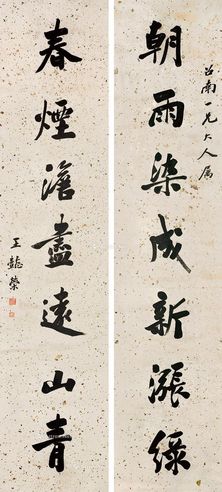 召南一兄大人属
朝雨染成新漲綠
春煙澹盡遠山青
王懿榮